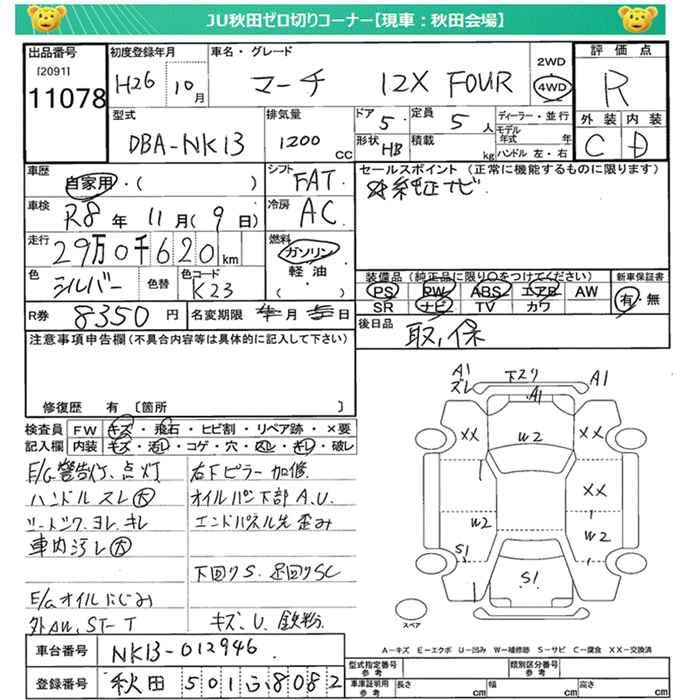 JU秋田ゼロ切りコーナー【現車：秋田会場】
出品番号 [2091] 11078
初度登録年月 H26 10月
車名・グレード マーチ 12X FOUR
2WD 4WD
評価点 R
外装 C 内装 D
型式 DBA-NK13
排気量 1200 cc
ドア 5 定員 5人
形状 HB 積載 kg
ディーラー・並行
モデル年式 年
ハンドル 左・右
車歴 自家用・( )
シフト FAT
車検 R8年 11月(9日)
冷房 AC
走行 29万0千620km
燃料 ガソリン 軽油 ( )
色 シルバー 色替 色コード K23
セールスポイント (正常に機能するものに限ります)
純正ナビ
装備品 (純正品に限り〇をつけてください)
PS PW ABS エアB AW
SR ナビ TV カワ
新車保証書 有・無
R券 8350円 名変期限 年 月 日
後日品 取,保
注意事項申告欄(不具合内容等は具体的に記入して下さい)
修復歴 有 〔箇所 〕
検査員記入欄
FW キズ・飛石・ヒビ割・リペア跡・×要
内装 キズ・汚レ・コゲ・穴・スレ・キレ・破レ
E/G警告灯、点灯
ハンドルスレ大
シートシワ、ヨレ、キレ
車内汚レ大
E/Gオイルにじみ
外AW, ST-T
右下ピラー加修
オイルパン下部A.U.
エンドパネル先歪み
下回りS. 足回りSC
キズ、U. 鉄粉
A1
ズレ
下スリ
A1
A1
XX W2 XX
XX
W2 W2
S1
S1
スペア
A-キズ E-エクボ U-凹み W-補修跡 S-サビ C-腐食 XX-交換済
車台番号 NK13-012946
登録番号 秋田 501 ふ 8082
型式指定番号 参考
類別区分番号 参考
車庫証明用 参考 長さ cm 幅 cm 高さ cm